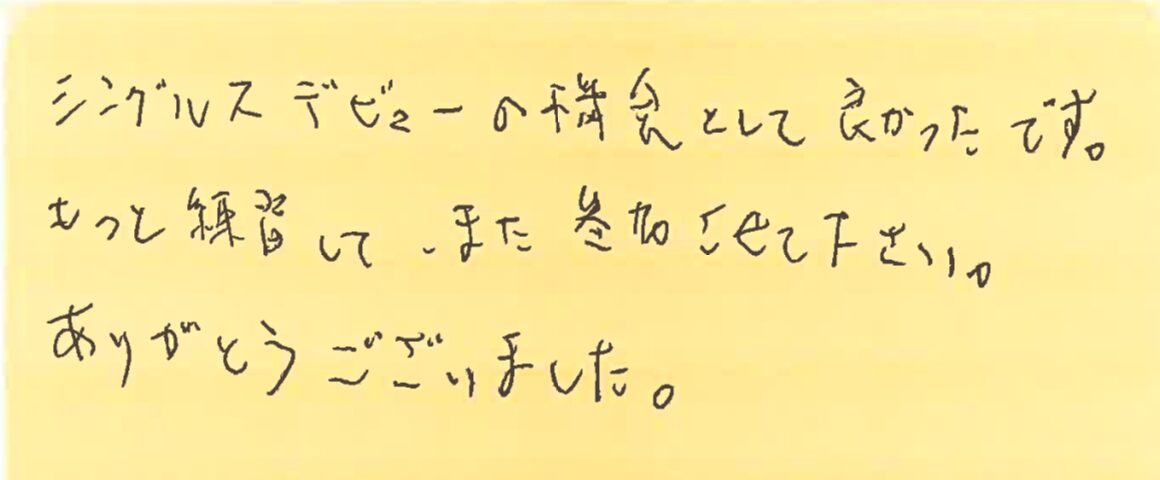 シングルスデビューの機会として良かったです。
もっと練習して、また参加させて下さい。
ありがとうございました。